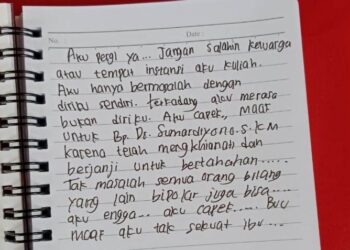 No. : Date :
Aku pergi ya... Jangan salahin keluarga
atau tempat instansi aku kuliah.
Aku hanya bermasalah dengan
diriku sendiri. Terkadang aku merasa
bukan diriku. Aku capek,, MAAF
untuk Bp. Ds. Sumardiyono. S. KM
karena telah mengkhianati dan
berjanji untuk bertahahan.....
Tak masalah semua orang bilang
yang lain bipolar juga bisa....
aku engga... aku capek..... Buu
MAAF aku tak sekuat ibu....